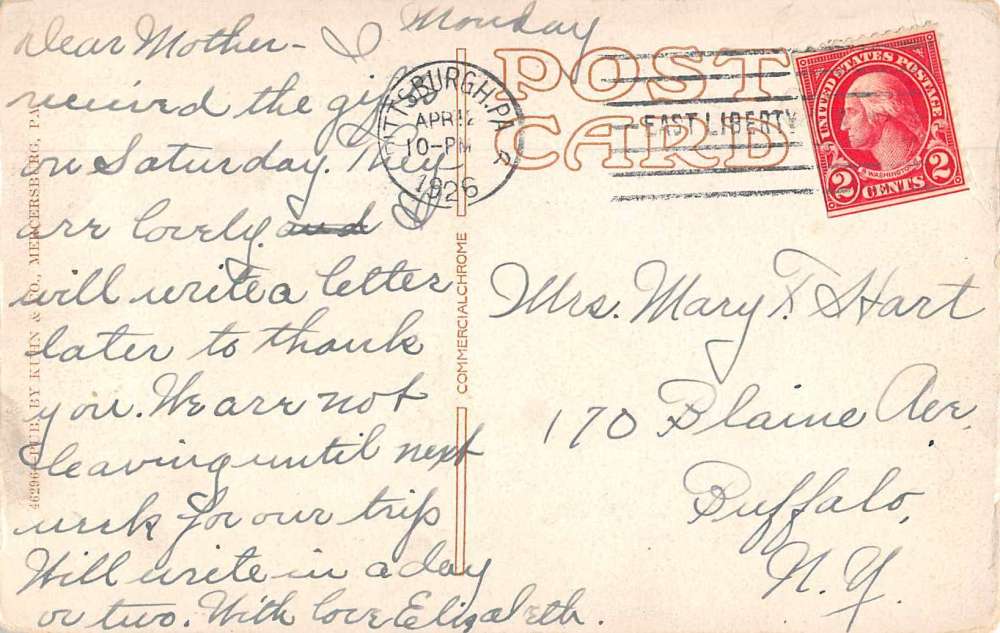 Monday
Dear Mother - I
received the gift
on Saturday. They
are lovely. and
will write a letter
later to thank
you. We are not
leaving until next
week for our trip
Will write in a day
or two. With love Elizabeth.
POST
CARD
PITTSBURGH, PA.
APR 12
10-PM
1926
EAST LIBERTY
UNITED STATES POSTAGE
WASHINGTON
2 CENTS 2
Mrs. Mary T. Hart
170 Blaine Ave.
Buffalo,
N.Y.
COMMERCIALCHROME
PUB. BY & CO., MERCERSBURG, PA.